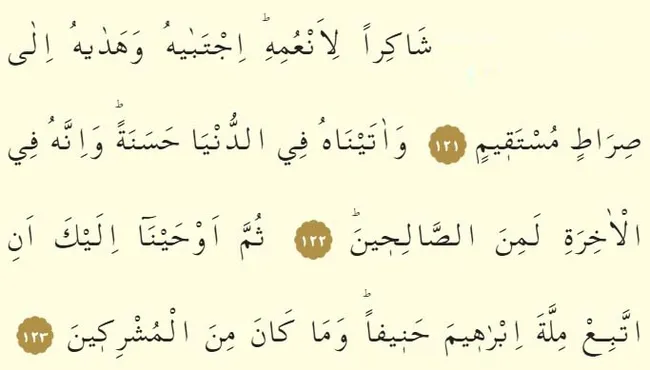 شَاكِراً لِاَنْعُمِهِۜ اِجْتَبٰيهُ وَهَدٰيهُ اِلٰى
صِرَاطٍ مُسْتَقٖيمٍ ﴿١٢١﴾ وَاٰتَيْنَاهُ فِي الدُّنْيَا حَسَنَةًۜ وَاِنَّهُ فِي
الْاٰخِرَةِ لَمِنَ الصَّالِحٖينَۜ ﴿١٢٢﴾ ثُمَّ اَوْحَيْنَٓا اِلَيْكَ اَنِ
اتَّبِعْ مِلَّةَ اِبْرٰهٖيمَ حَنٖيفاًۜ وَمَا كَانَ مِنَ الْمُشْرِكٖينَ ﴿١٢٣﴾